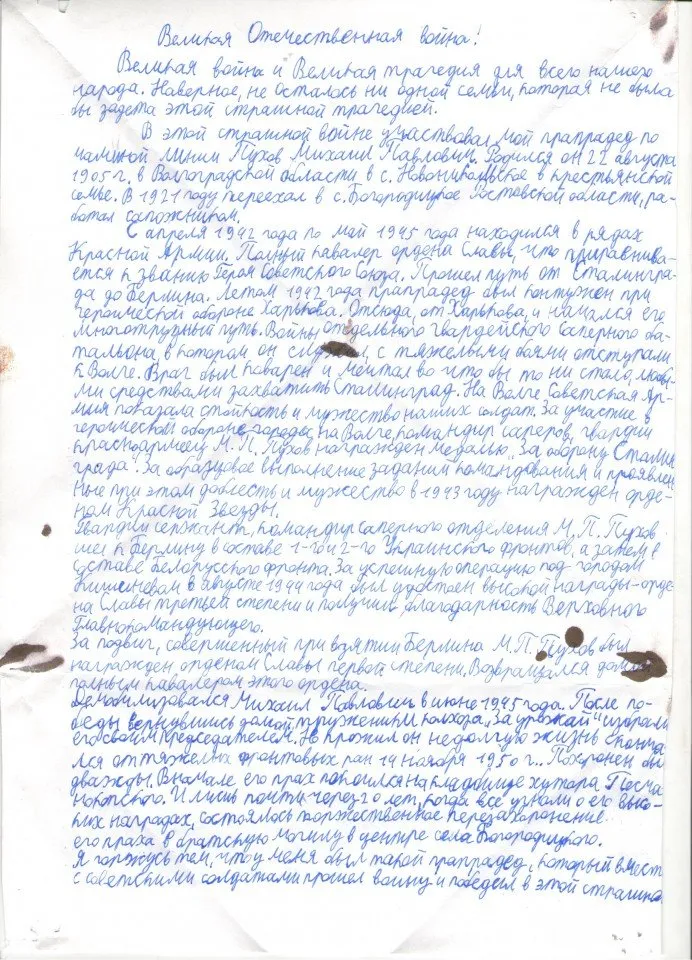 Великая Отечественная война!
Великая война и Великая трагедия для всего нашего
народа. Наверное, не осталось ни одной семьи, которая не была
бы задета этой страшной трагедией.
В этой страшной войне участвовал мой прапрадед по
маминой линии Пухов Михаил Павлович. Родился он 22 августа
1905 г. в Волгоградской области в с. Новоникольское в крестьянской
семье. В 1921 году переехал в с. Богородицкое Ростовской области, ра-
ботал сапожником.
С апреля 1942 года по май 1945 года находился в рядах
Красной Армии. Полный кавалер ордена Славы, что приравнива-
ется к званию Героя Советского Союза. Прошел путь от Сталингра-
да до Берлина. Летом 1942 года прапрадед был контужен при
героической обороне Харькова. Отсюда, от Харькова, и начался его
многотрудный путь. Войны отдельного гвардейского саперного ба-
тальона, в котором он служил, с тяжелыми боями отступали
к Волге. Враг был коварен и мечтал во что бы то ни стало, любы-
ми средствами захватить Сталинград. На Волге Советская Ар-
мия показала стойкость и мужество наших солдат. За участие в
героической обороне города на Волге, командир саперов, гвардии
красноармеец М. П. Пухов награжден медалью „За оборону Сталин
града". За образцовое выполнение заданий командования и проявлен
ные при этом доблесть и мужество в 1943 году награжден орде-
ном Красной Звезды.
Гвардии сержант, командир саперного отделения М. П. Пухов
шел к Берлину в составе 1-го и 2-го Украинского фронтов, а затем в
составе белорусского фронта. За успешную операцию под городом
Кишеневом в августе 1944 года был удостоен высокой награды-орде
на Славы третьей степени и получил благодарность Верховного
Главнокомандующего.
За подвиг, совершенный при взятии Берлина М. П. Пухов был
награжден орденом Славы первой степени. Возвращался домой
полным кавалером этого ордена.
Демобилизовался Михаил Павлович в июне 1945 года. После по-
беды вернувшись домой труженики колхоза „За урожай" избрали
его своим председателем. Но прожил он недолгую жизнь скончa
лся от тяжелых фронтовых ран 14 ноября 1950 г.. Похоронен был
дважды. Вначале его прах покоился на кладбище хутора Песча
нокопского. И лишь почти через 20 лет, когда все узнали о его высо-
ких наградах, состоялось торжественное перезахоронение
его праха в братскую могилу в центре села Богородицкого.
Я горжусь тем, что у меня был такой прапрадед, который вмест
с советскими солдатами прошел войну и победил в этой страшно